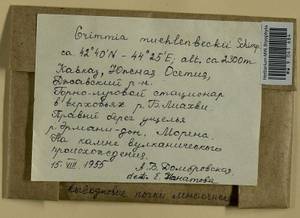 Grimmia muehlenbeckii Schimp.
ca 42°40'N - 44°25'E; alt. ca 2300m
Кавказ, Южная Осетия,
Джавский р-н.
Горно-луговой стационар
в верховьях р. Б. Лиахви.
Правый берег ущелья
р. Эрмани-дон. Морена.
На камне вулканического
происхождения.
15.VIII.1955 Домбровская
det. Е. Игнатова
выводковые почки